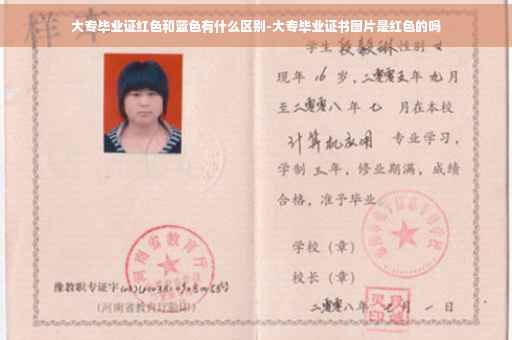 大专毕业证红色和蓝色有什么区别-大专毕业证书图片是红色的吗
样本
学生段毅琳性别女
现年 16 岁，二零零五年 九月
至二零零八年 七 月在本校
计算机应用 专业学习，
学制 三 年，修业期满，成绩
合格，准予毕业
学校（章）
校长（章）
二零零八年 七 月 一 日
河南省教育厅
豫教职专证字
(河南省教育厅验印)